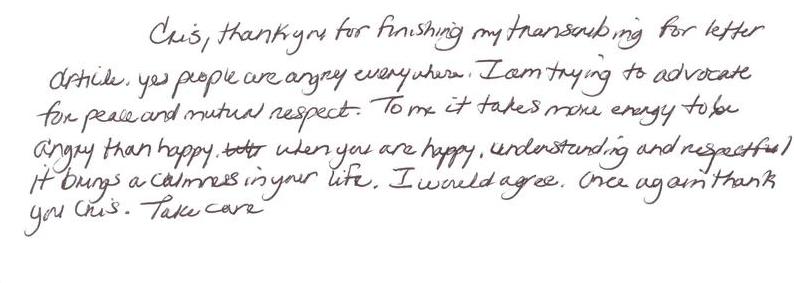 Cris, thank you for finishing my transcribing for letter
article. yes people are angry everywhere. I am trying to advocate
for peace and mutual respect. To me it takes more energy to be
angry than happy. when you are happy, understanding and respectful
it brings a calmness in your life. I would agree. Once again thank
you Cris. Take care